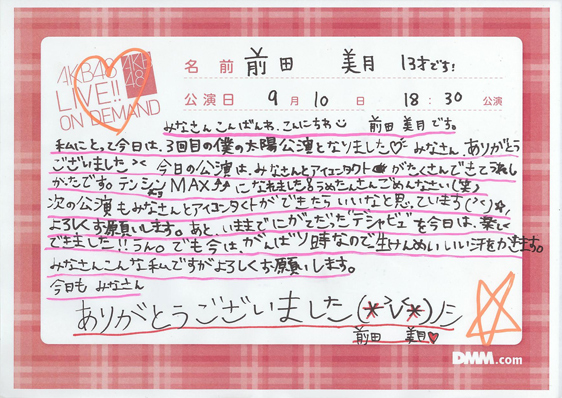 AKB48
LIVE!!
ON DEMAND
AKB
48
名前 前田 美月 13才です!
公演日 9月10日 18:30公演
みなさんこんばんわ、こんにちわ 前田 美月です。
私にとって今日は、3回目の僕の太陽公演となりました♡ みなさん、ありがとう
ございました>< 今日の公演は、みなさんとアイコンタクトがたくさんできてうれし
かったです。テンションMAX⤴⤴になれました!うめたんさんごめんなさい(笑)
次の公演もみなさんとアイコンタクトができたらいいなと思っています(>
よろしくお願いします。あと、いままでにがてだったデジャビュを今日は、楽しく
できました!!うん。でも今は、がんばり時なので生けんめいいい汗をかきます。
みなさんこんな私ですがよろしくお願いします。
今日も みなさん
ありがとうございました(*>∨<*)ノシ
前田 美月♥
DMM.com